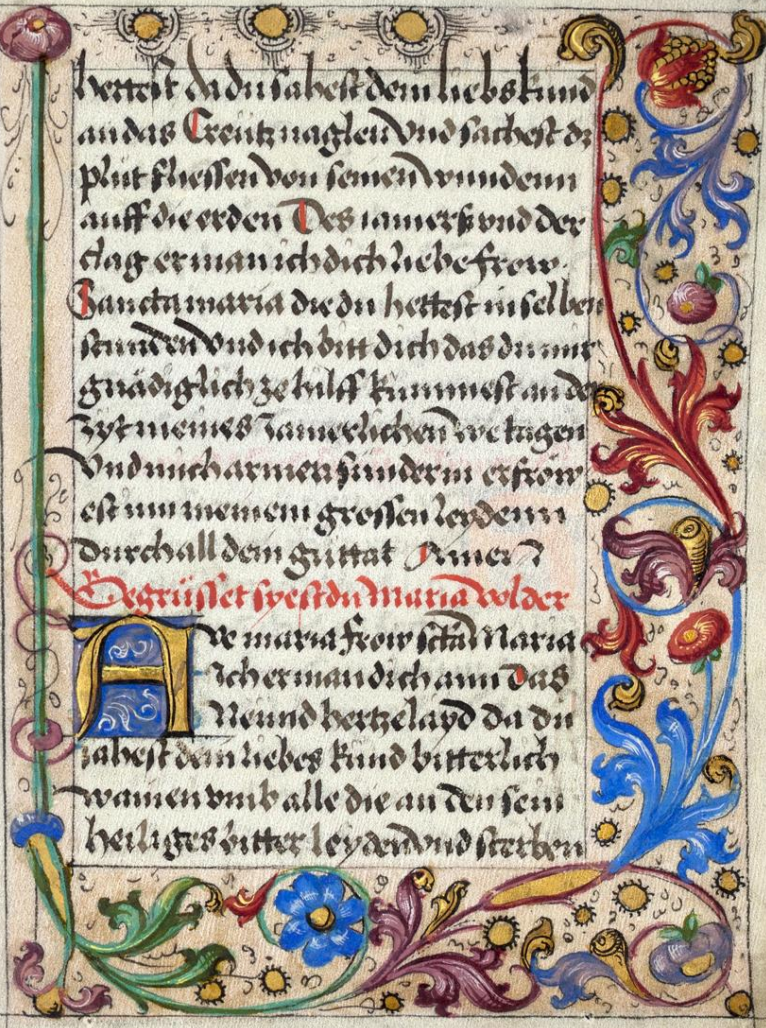 hettest da du sahest dein liebs kund
an das Creütz naglen vnd sachest dz
plut fliessen von seinen wundenn
auff die erden Des iamerß vnd der
clag erman ich dich liebe frow
Sancta maria die du hettest in selben
stunden vnd ich bitt dich das du mir
gnädiglich ze hilff kummest an der
zyt meines Jamerlichen we tagen
Vnd mich armen sünderin erfröw
est inn meinem grossen leydenn
durch all dein guttat Amen
Gegrüsset syest du Maria volder
Ave maria frow scta Maria
Ich erman dich ann das
Neund hertzelayd da du
sahest dein liebes kund bitterlich
wainen vmb alle die an den sein
heiliges bitter leyden vnd sterben